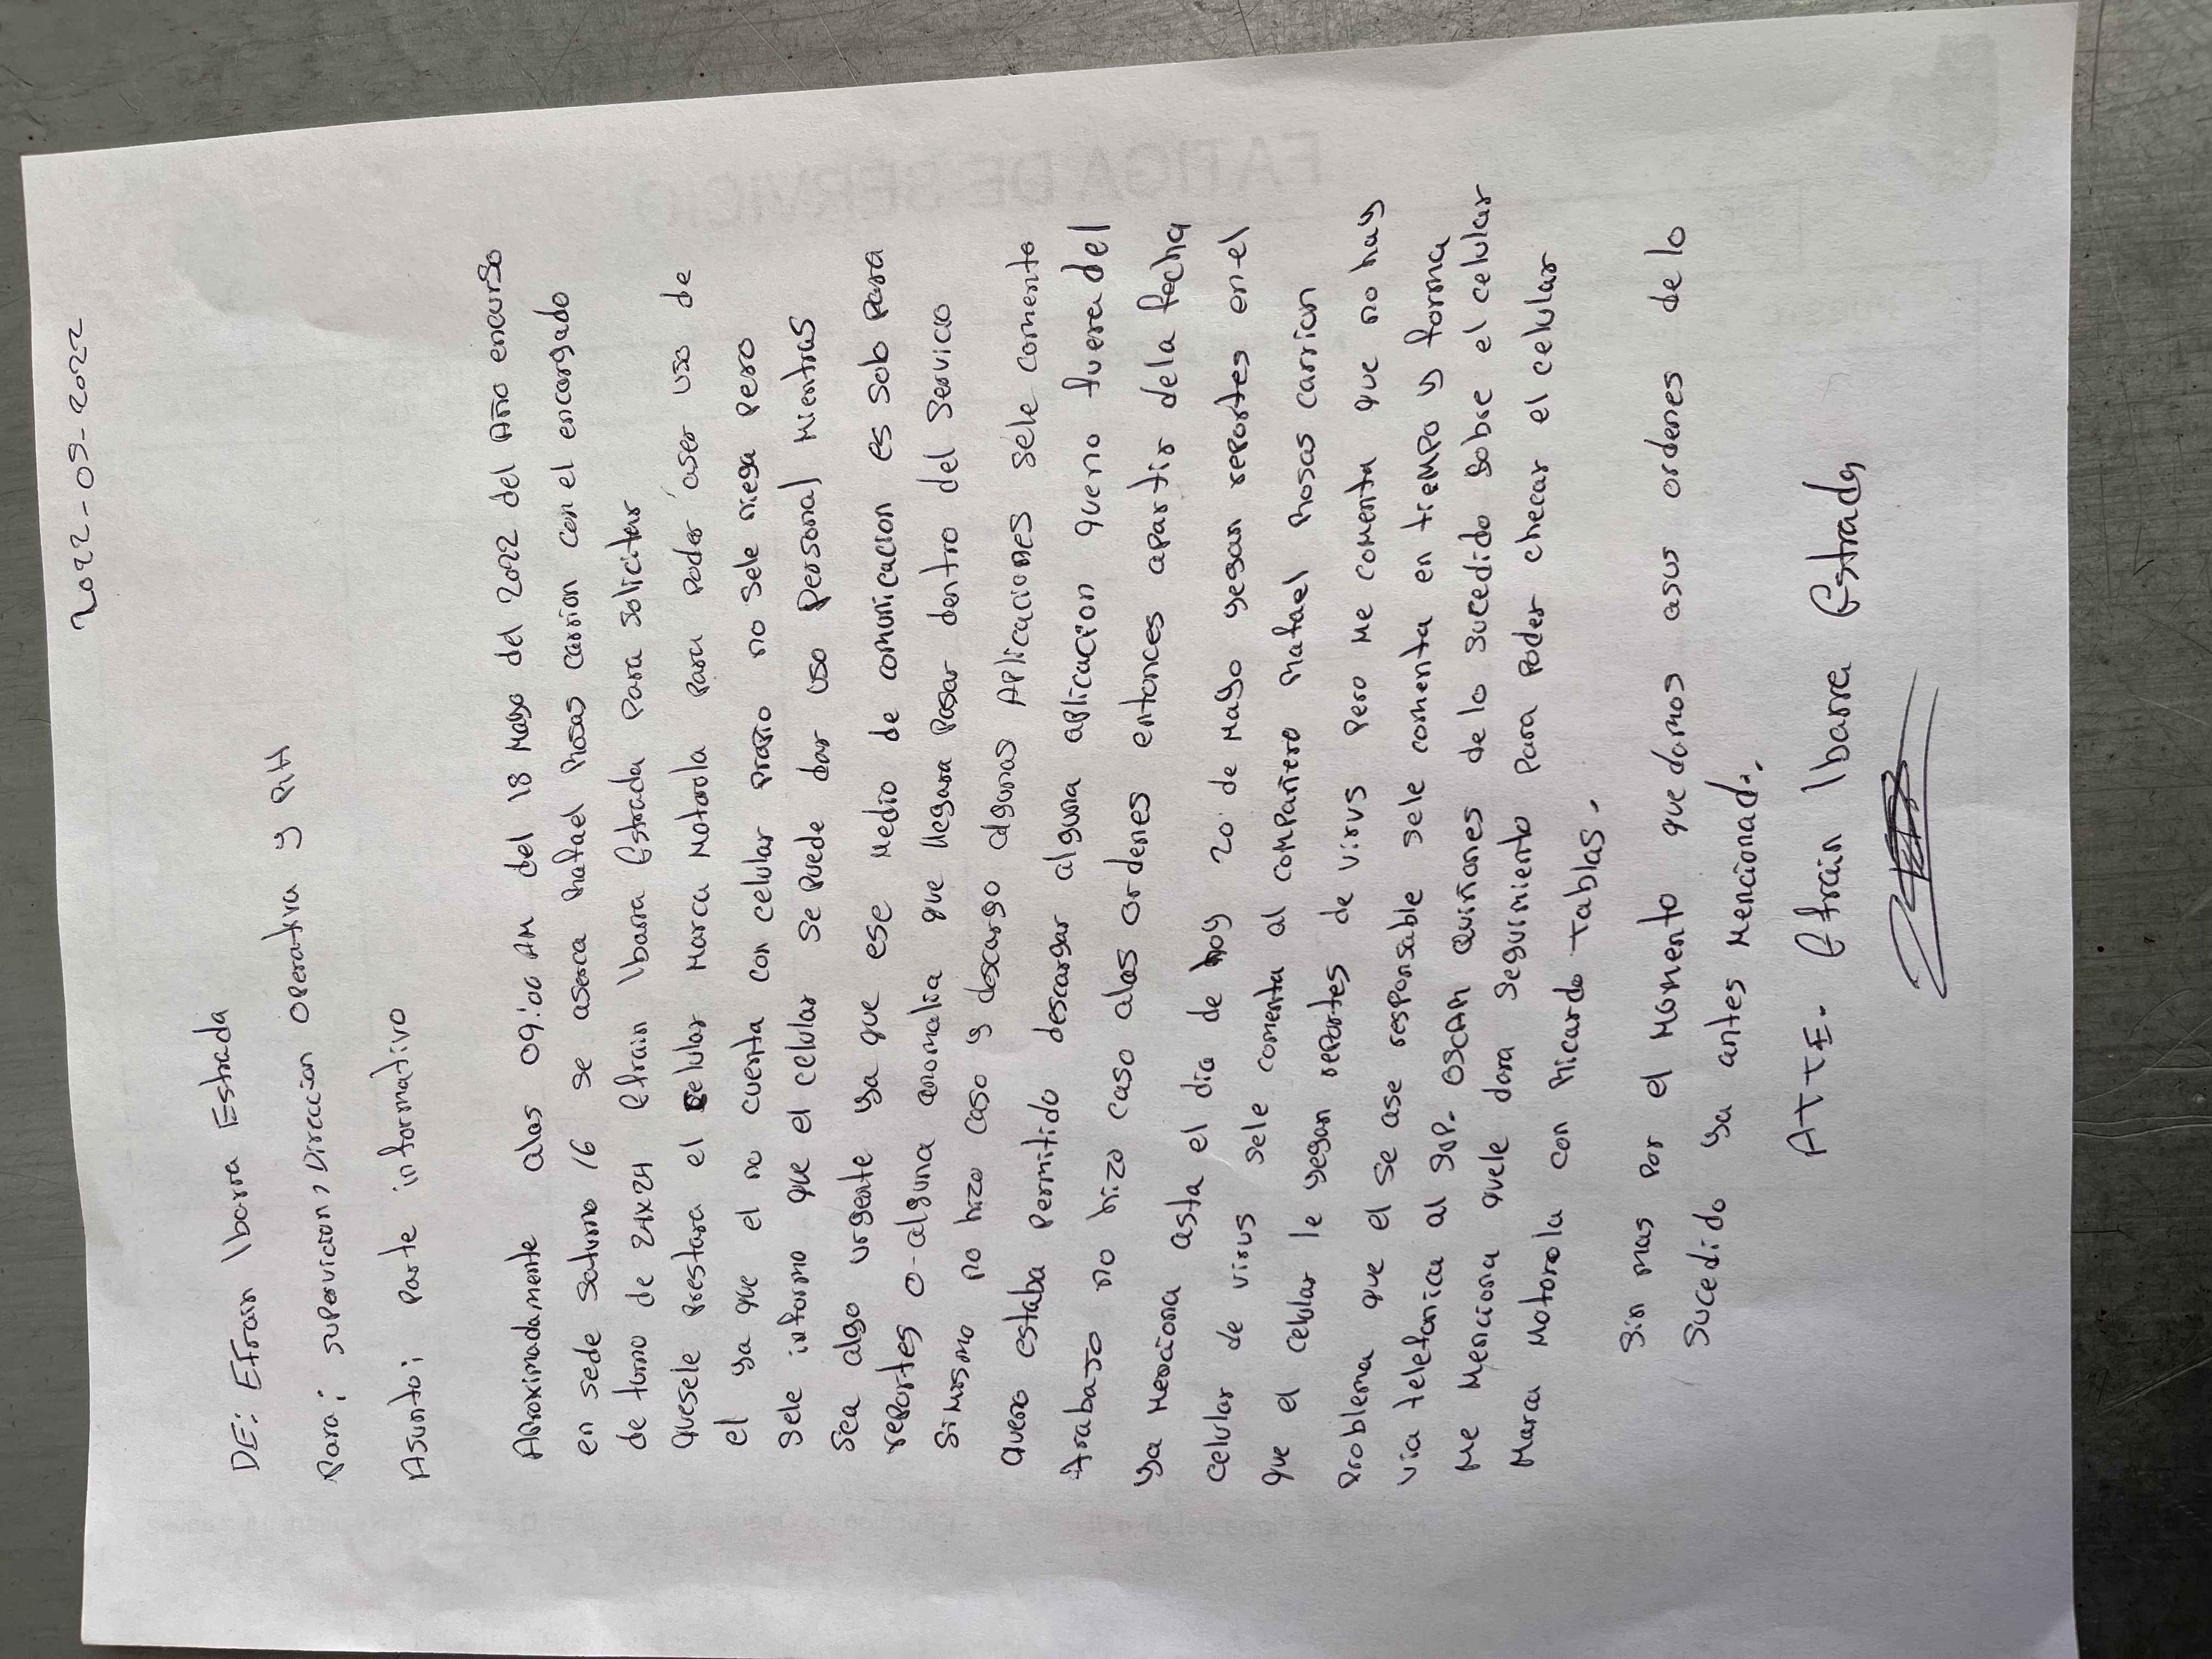 2022-05-2022
DE: Efrain Ibarra Estrada
Para: supervicion, Direccion operativa y RH
Asunto: Parte informativo
Aproximadamente alas 09:00 AM del 18 Mayo del 2022 del Año encurso
en sede Saturno 16 se aserca Rafael Rosas carrion con el encargado
de turno de 24x24 Efrain Ibarra Estrada Para solicitar
quesele prestara el celular Marca Motorola para poder aser uso de
el ya que el no cuenta con celular propio no sele niega pero
sele informo que el celular se puede dar uso personal Mientras
sea algo urgente ya que ese Medio de comunicacion es solo para
reportes o-alguna anomalia que llegara Pasar dentro del servicio
simismo no hizo caso y descargo algunas Aplicaciones sele comento
queno estaba permitido descargar alguna aplicacion queno fuera del
trabajo no hizo caso alas ordenes entonces apartir dela fecha
ya menciona asta el dia de hoy 20 de Mayo yegan reportes en el
celular de virus sele comenta al compañero Rafael Rosas carrion
que el celular le yegan reportes de virus pero me comenta que no hay
problema que el se ase responsable sele comenta en tiempo y forma
via telefonica al sup. OSCAR Quiñones de lo sucedido sobre el celular
me Menciona quele dara seguimiento para poder checar el celular
Marca Motorola con Ricardo tablas.
sin mas por el momento que damos asus ordenes de lo
sucedido ya antes Mencionado.
ATTE. Efrain Ibarra Estrada
FATIGA DE SERVICIO